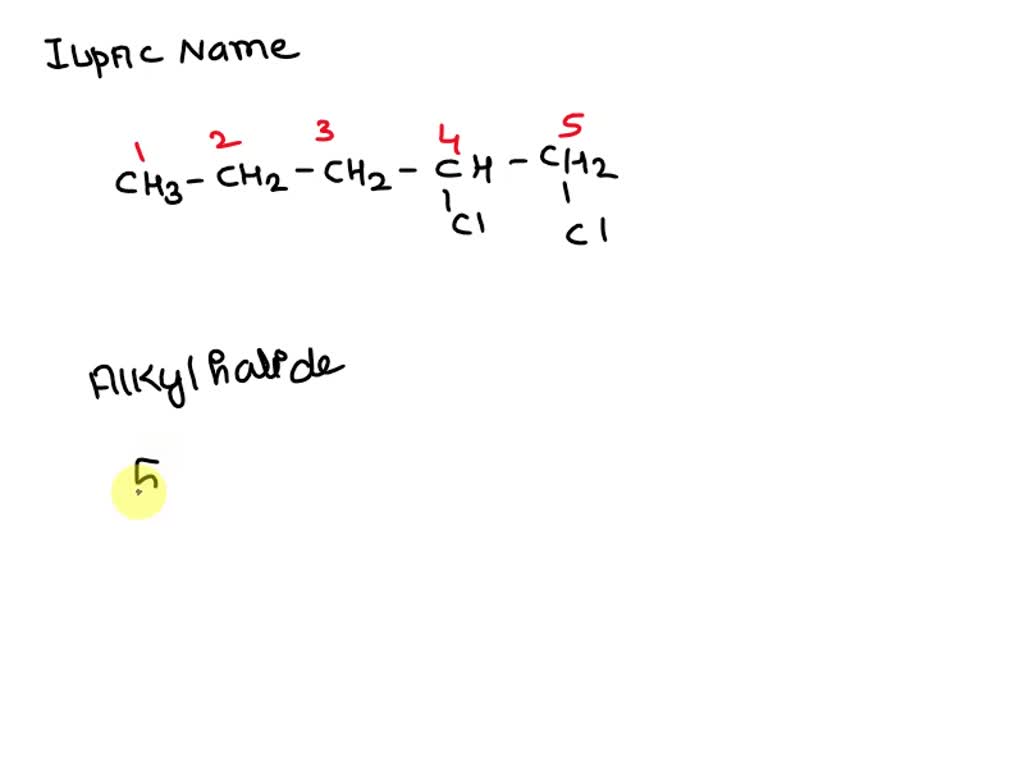 IUPAC Name
1 2 3 4 5
CH3 - CH2 - CH2 - CH - CH2
Cl Cl
Alkyl halide
5